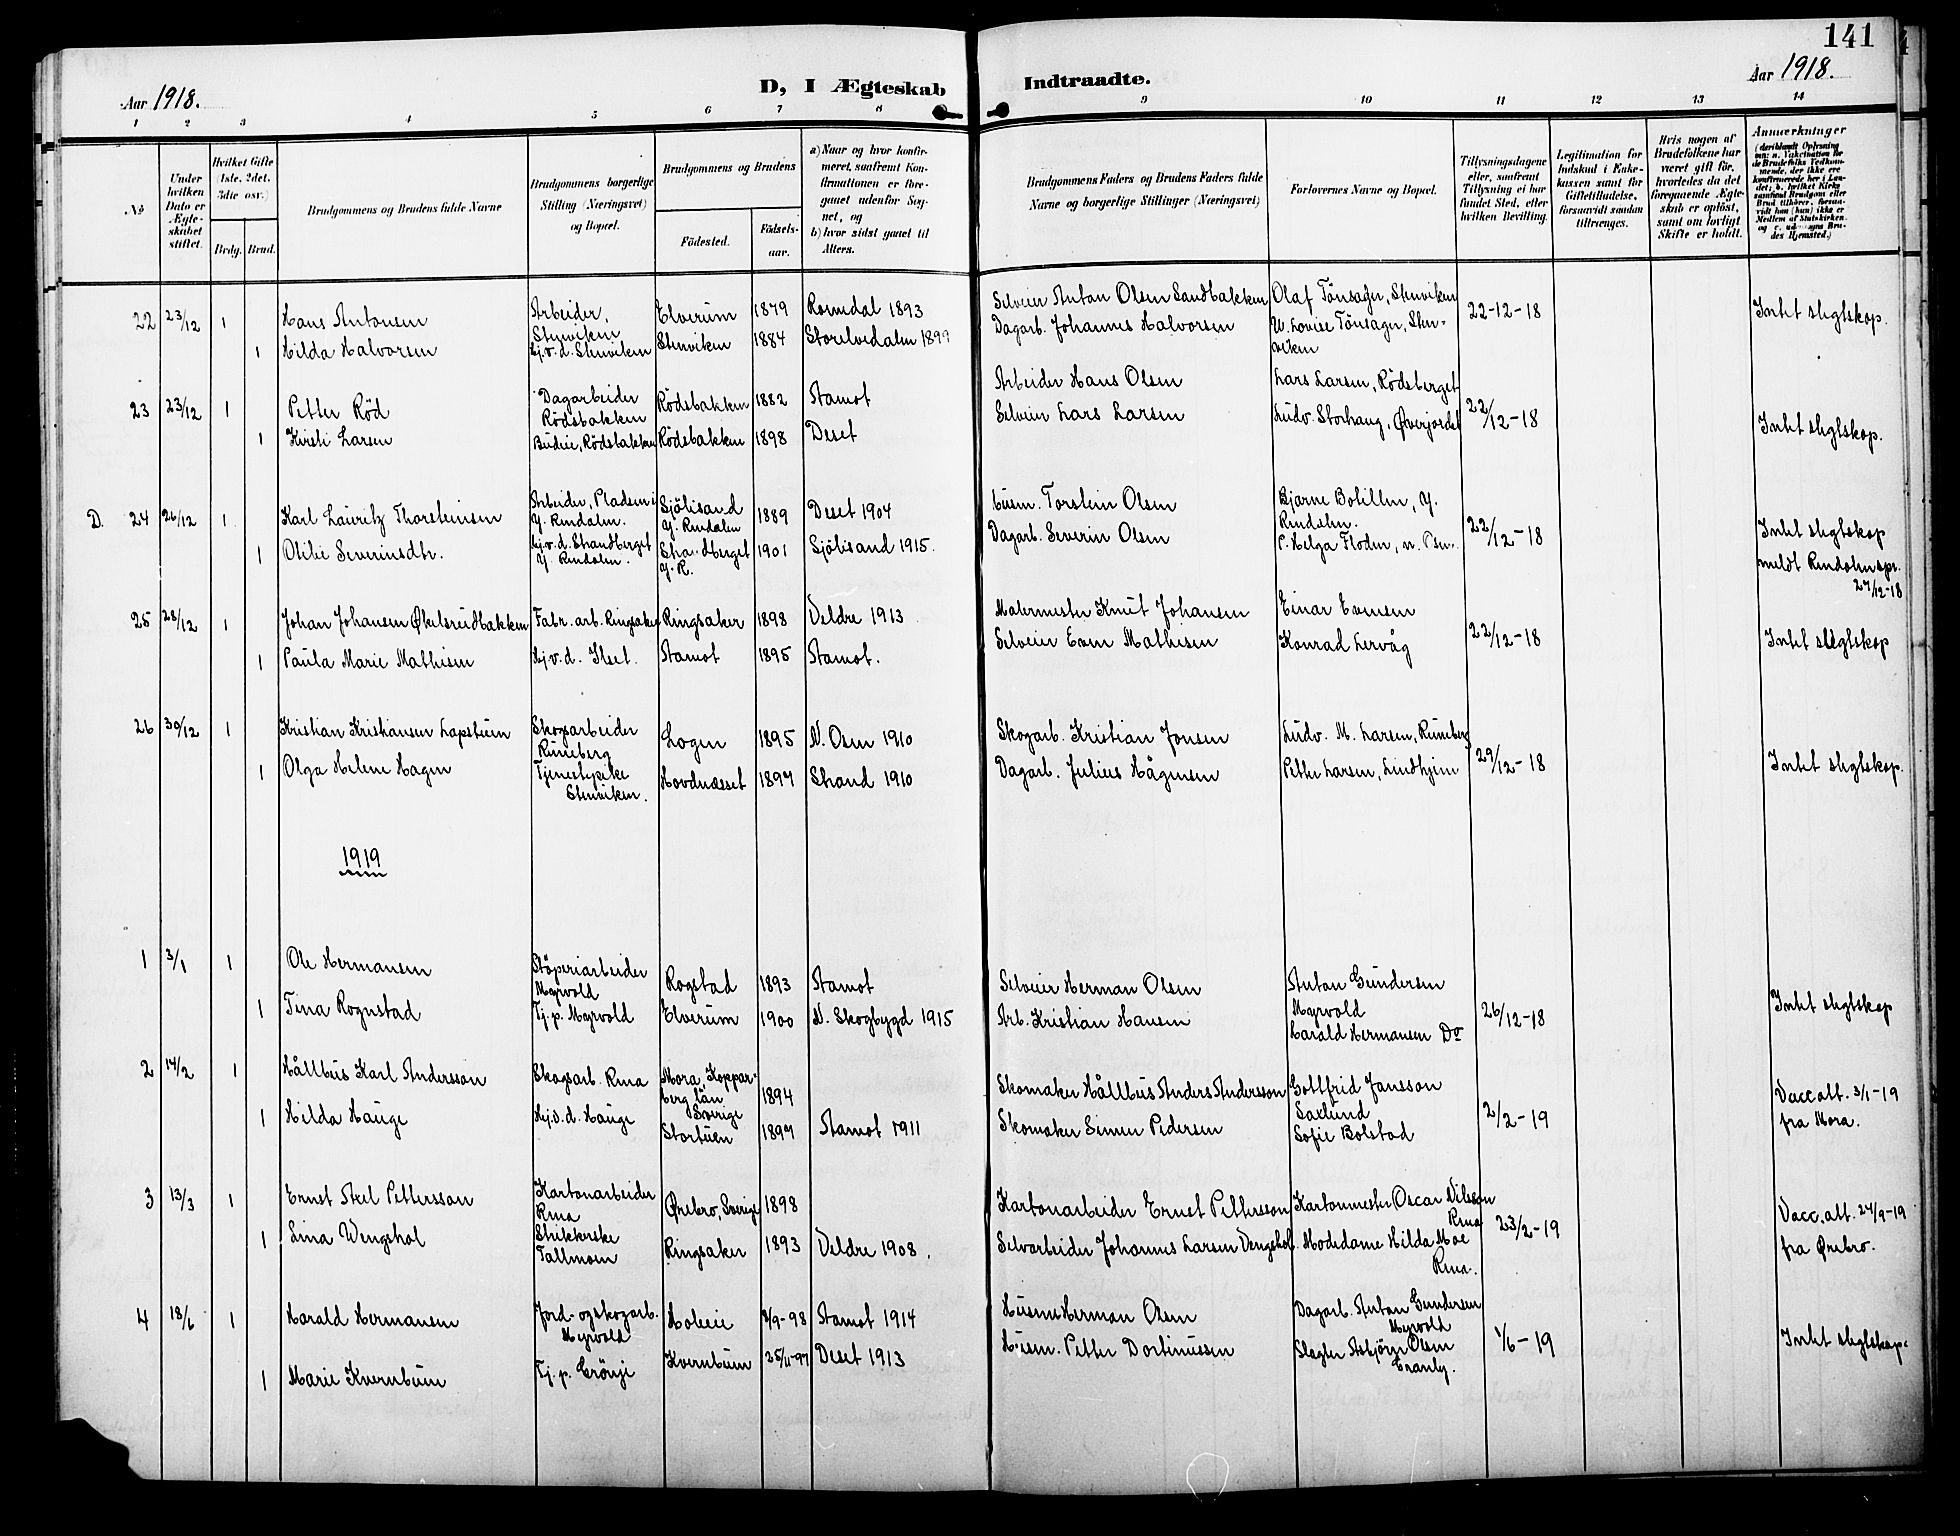 141
Aar 1918.
D, I Ægteskab Indtraadte.
Aar 1918.
1 2 3 4 5 6 7 8 9 10 11 12 13 14
No
Under hvilken Dato er Ægteskabet stiftet.
Hvilket Gifte (1ste, 2det, 3die osv.)
Brdg. Brud.
Brudgommens og Brudens fulde Navne
Brudgommens borgerlige Stilling (Næringsvei) og Bopæl.
Brudgommens og Brudens
Födested.
Födselsaar.
a) Naar og hvor konfirmeret, saafremt Konfirmationen er foregaaet udenfor Sognet, og
b) hvor sidst gaaet til Alters.
Brudgommens Faders og Brudens Faders fulde Navne og borgerlige Stillinger (Næringsvei)
Forlovernes Navne og Bopæl.
Tillysningsdagene eller, saafremt Tillysning ei har fundet Sted, efter hvilken Bevilling.
Legitimation for Indskud i Enkekassen samt for Giftetilladelse, forsaavidt saadan tiltrænges.
Hvis nogen af Brudefolkene har været gift før, hvorledes da det foregaaende Ægteskab er opløst, samt om lovligt Skifte er holdt.
Anmerkninger
22 23/12 1 Hans Antonsen Arbeider, Stenviken Elverum 1879 Romedal 1893 Selveier Anton Olsen Sandbakken Olaf Tönsager, Stenviken 22-12-18 Intet slegtskap.
1 Hilda Halvorsen Hj.v.d. Stenviken Stenviken 1884 Storelvedalen 1899 Dagarb. Johannes Halvorsen Lovise Tönsager, Stenviken
23 23/12 1 Petter Röd Dagarbeider Rödsbakken Rödsbakken 1882 Aamot Arbeider Hans Olsen Lars Larsen, Rødsberget 22/12-18 Intet slegtskap.
1 Kristi Larsen Budeie, Rödsbakken Rödsbakken 1898 Deset Selveier Lars Larsen Ludv. Storhaug, Øverjordet
D. 24 26/12 1 Karl Lauritz Thorsteinsen Arbeider, Pladsen i Y. Rendalen. Sjölisand Y. Rendalen 1889 Deset 1904 Husm. Torstein Olsen Bjarne Botillen, Y. Rendalen. 22/12-18 Intet slegtskap
1 Otilie Severinsdtr. Hj.v.d. Strandberget Y. Rendalen. Y. R. 1901 Sjölisand 1915. Dagarb. Severin Olsen Helga Floden, meldt Rendalen spr. 27/12-18
25 28/12 1 Johan Johansen Økelsrudbakken Fabr.arb. Ringsaker Ringsaker 1898 Veldre 1913 Malermester Knut Johansen Einar Evensen 22/12-18 Intet slegtskap
1 Paula Marie Mathisen Hj.v.d. Ilset. Aamot 1895 Aamot. Selveier Even Mathisen Konrad Lervåg
26 30/12 1 Kristian Kristiansen Lapstuen Skogsarbeider Runeberg Logen 1895 N. Osen 1910 Skogarb. Kristian Jonsen Ludv. M. Larsen, Runeberg 29/12-18 Intet slegtskap.
1 Olga Helene Hagen Tjenestepike Stenviken. Hovdnesset 1897 Strand 1910 Dagarb. Julius Hågensen Petter Larsen, Lindhjem
1919
1 3/1 1 Ole Hermansen Stöperiarbeider Myrvold Rogstad 1893 Aamot Selveier Herman Olsen Anton Gundersen Myrvold 26/12-18 Intet slegtskap
1 Tina Rognstad Tj.p. Myrvold Elverum 1900 N. Skogbygd 1915 Arb. Kristian Hansen Harald Hermansen Do
2 14/2 1 Hållbus Karl Andersson Skogsarb. Rena Mora, Kopparberg län Sverige 1894 Skomaker Hållbus Anders Andersson Gottfrid Jansson Saxlund 2/2-19 Vacc.att. 3/1-19 fra Mora.
1 Hilda Hauge Hj.v.d. Hauge Stortuen 1897 Aamot 1911 Skomaker Simen Pedersen Sofie Bolstad
3 13/3 1 Ernst Axel Pettersson Kartonarbeider Rena Ørebro, Sverige 1898 Kartonarbeider Ernst Pettersson Kartonmester Oscar Nilsson Rena 23/2-19 Vacc.att. 24/9-19 fra Ørebro.
1 Lina Wengshol Strikkerske Tallmoen Ringsaker 1893 Veldre 1908. Selvarbeider Johannes Larsen Vengshol. Modedame Hilda Moe Rena.
4 18/6 1 Harald Hermansen Jord- og skogarb. Myrvold Holeie 3/9-98 Aamot 1914 Husm. Herman Olsen Dagarb. Anton Gundersen Myrvold 1/6-19 Intet slegtskap.
1 Marie Kvernbuen Tj.p. Grönji Kvernbuen 25/11-97 Deset 1913 Husm. Petter Dortinussen Slagter Asbjörn Olsen Granly.